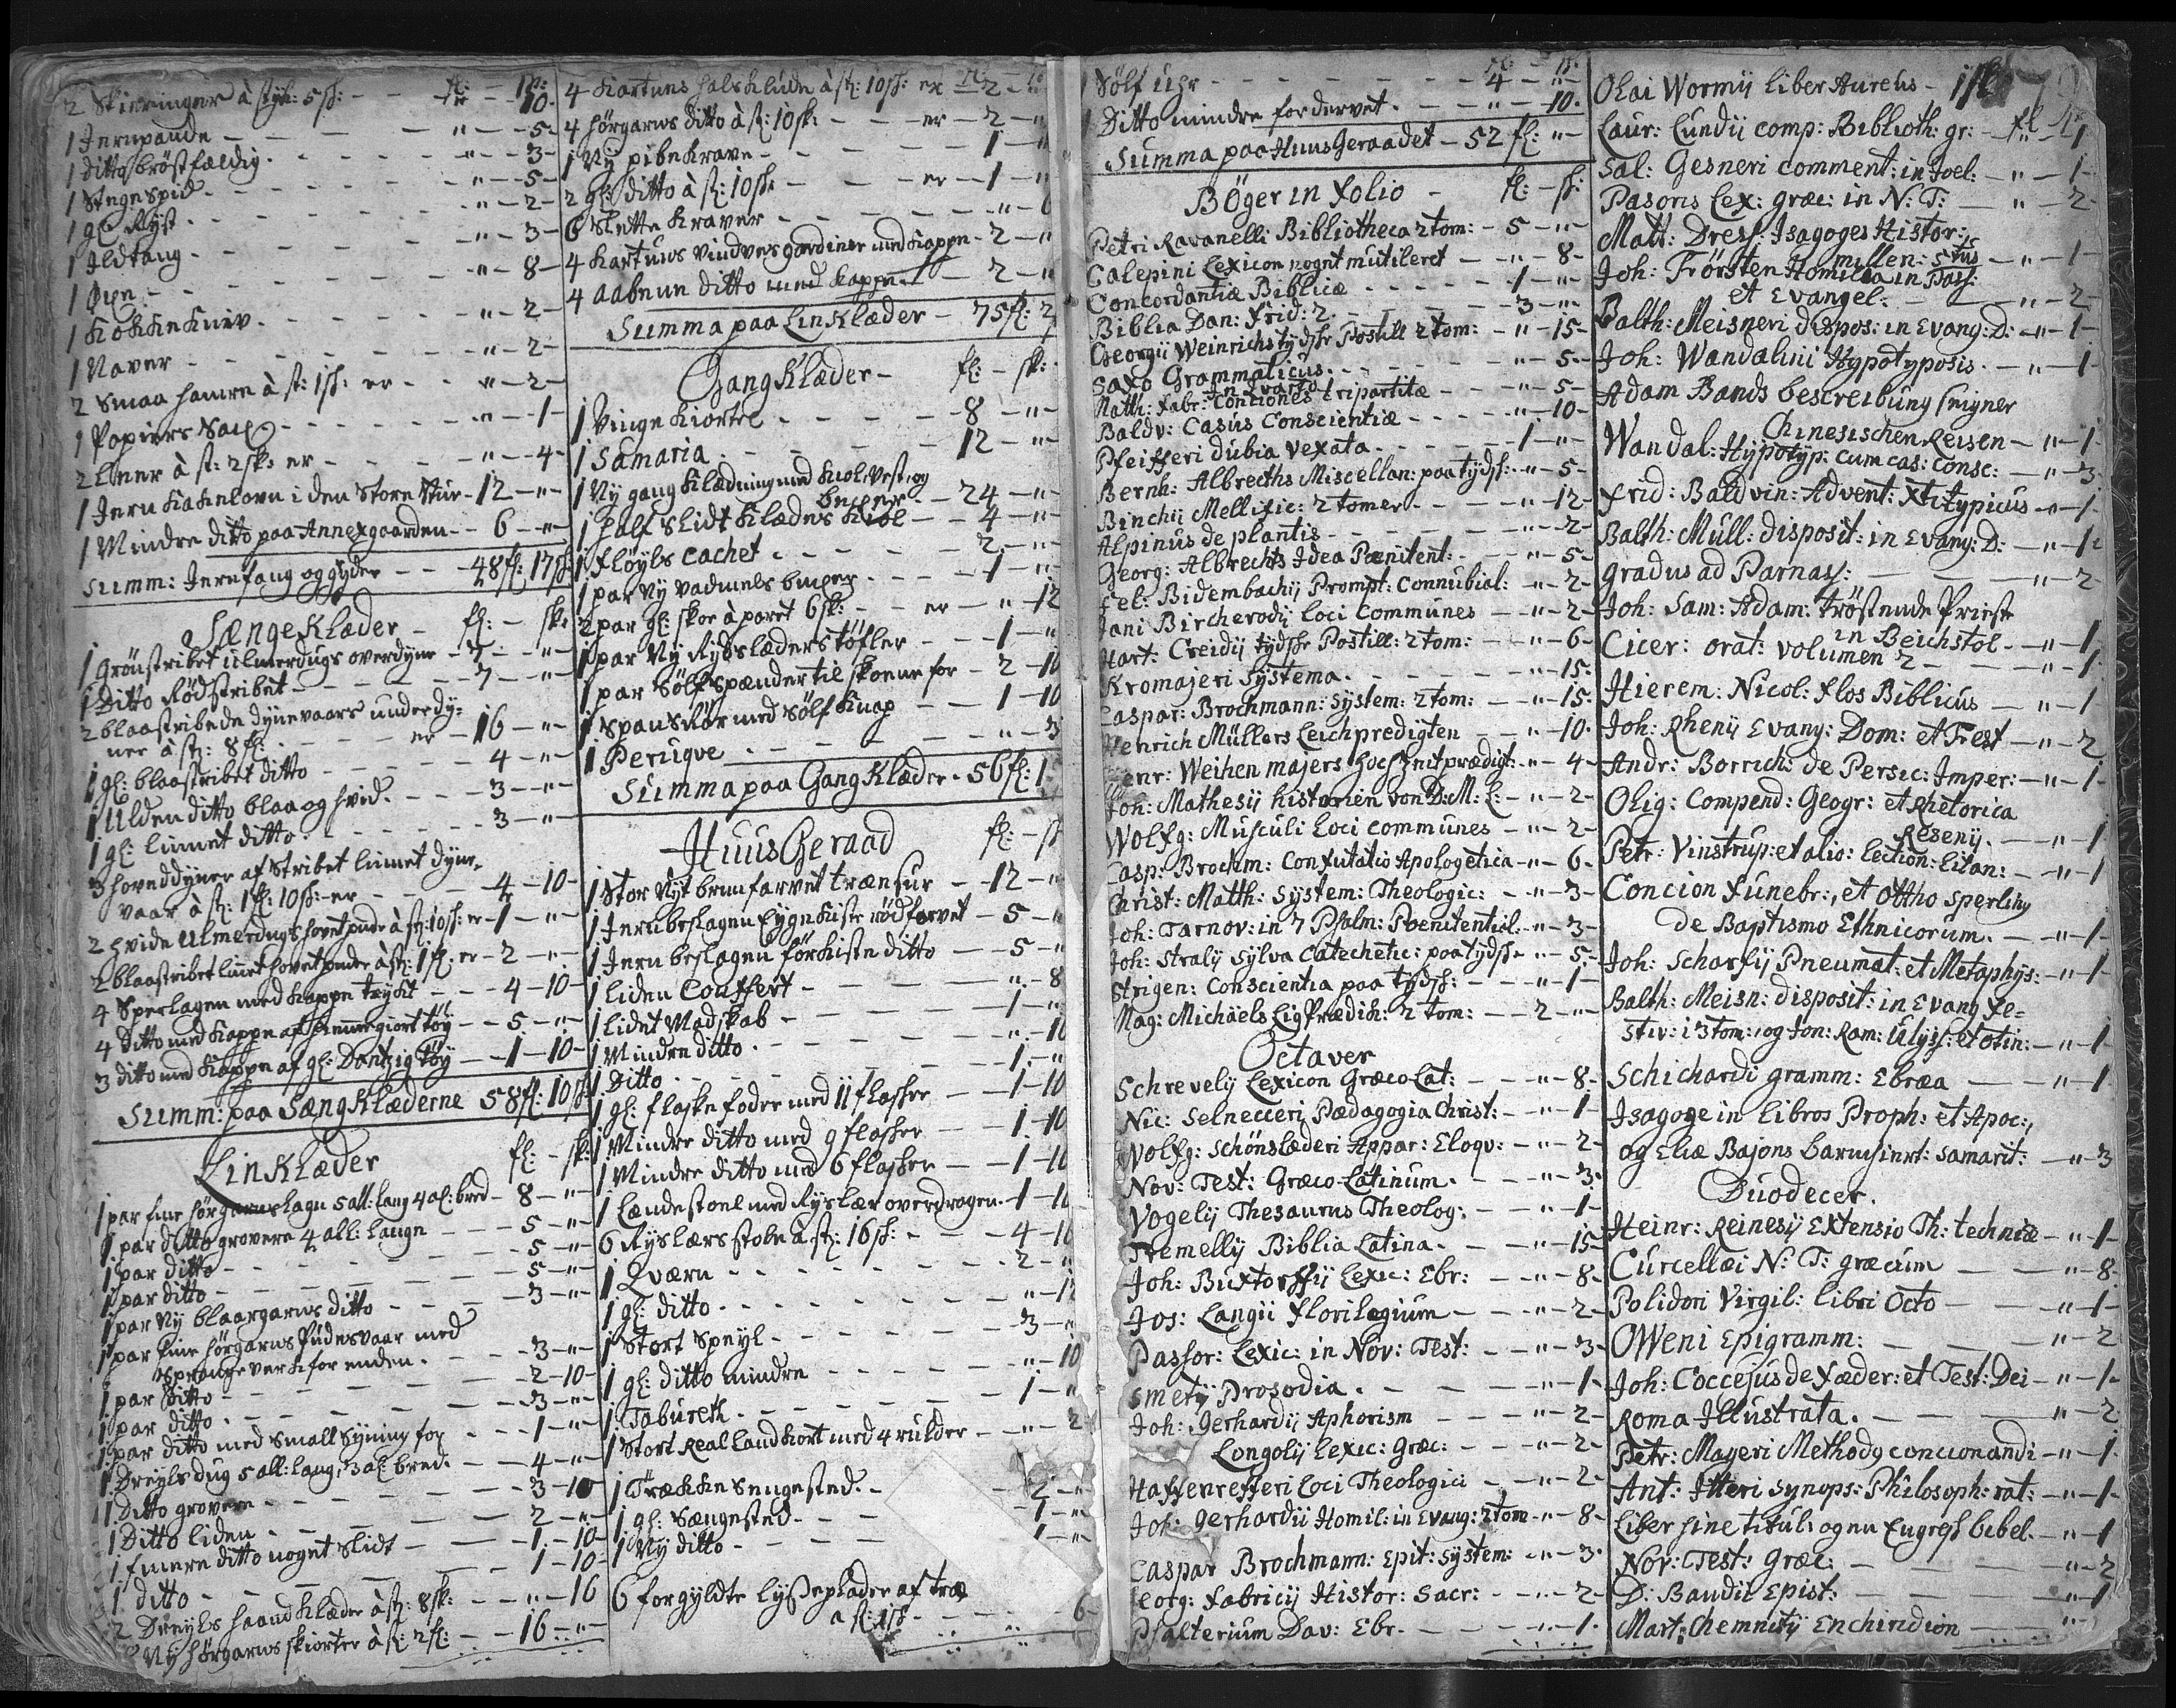 fl: – sk:
2 Skieringer à styk: 5 sk: – er – 10
1 Jernpande – " – 5
1 ditto bröstfældig – " – 3
1 Stegespid – " – 5
1 gl: Ryst – " – 2
1 Ildtang – " – 3
1 Øxe – " – 8
1 Kokke Kniv – " – 2
1 Naver – " – 2
2 Smaa hamre à st: 1 sk: er – " – 2
1 Papiirs Sax – " – 1
2 à st: 2 sk: er – " – 4
1 Jern Kakelovn i den Store Stue – 12 – "
1 Mindre ditto paa Annexgaarden – 6 – "
Summ: Jernfang og gyder – 48 fl: 17 sk:
Sænge Klæder – fl: – sk:
1 Grönstribet Ulmerdugs overdyne – 7 – "
1 Ditto Rödstribet – 7 – "
2 blaastribede dynevaars underdy-
ner à st: 8 fl: er – 16 – "
1 gl: blaastribet ditto – 4 – "
1 Ulden ditto blaa og hvid – 3 – "
1 gl: linnet ditto – 3 – "
3 hoveddyner af Stribet linnet dyne-
vaar à st: 1 fl: 10 sk: er – 4 – 10
2 hvide Ulmerdugs hovetpude à st: 10 sk: er – 1 – "
2 blaastribet linnet hovetpuder à st: 1 fl: er – 2 – "
4 Sperlagen med Kappe trykt – 4 – 10
4 Ditto med Kappe af hiemmegiort töy – 5 – "
3 ditto med Kappe af gl: Dantzig töy – 1 – 10
Summ: paa Sæng Klæderne 58 fl: 10 sk:
Lin Klæder fl: – sk:
1 par fine hörgarns lagn 5 all: lang 4 al: bred – 8 – "
1 par ditto grovere 4 all: lange – 5 – "
1 par ditto – 5 – "
1 par ditto – 5 – "
1 par Ny blaargarns ditto – 3 – "
1 par fine hörgarns Pudesvaar med
Sprangeverk for enden – 3 – "
1 par Ditto – 2 – 10
1 par ditto – 3 – "
1 par ditto med small Syning for – 1 – "
1 Dreyls dug 5 all: lang, 3 al: bred – 4 – "
1 Ditto grovere – 3 – 10
1 Ditto liden – 2 – "
1 finere ditto noget slidt – 1 – 10
1 ditto – 1 – 10
2 Dreyls haand Klæder à st: 8 sk: – " – 16
Ny hörgarns skiorter à st: 2 fl: – 16 – "
4 Kartuns hals Klude à st: 10 sk: er – 2 – "
4 hörgarns ditto à st: 10 sk: – er – 2 – "
1 Ny pibe Krave – 1 – "
2 gl: ditto à st: 10 sk: er – 1 – "
6 Slette Kraver – " – 6
4 Kartuns Vindves gardiner med Kappe – 2 – "
4 Aabnun ditto med Kappe – 2 – "
Summa paa Lin Klæder – 75 fl: 2
Gang Klæder – fl: – sk:
1 Vinge Kiortel – 8 – "
1 Samaria – 12 – "
1 Ny gang Klædning med Kiol, Vest, og
buxer – 24 – "
1 half slidt Klædes Kiol – 4 – "
1 fløyls cachet – 2 – "
1 par Ny vadmels buxer – 1 – "
2 par gl: skoe à paret 6 sk: er – " – 12
1 par Ny Rydslæders töfler – 1 – "
1 par Sölfspænder til skoene for – 2 – 10
1 Spansk Rör med Sölf Knap – 1 – 10
1 Peruqve – " – 3
Summa paa Gang Klæder – 56 fl: 1
Huus Geraad fl: – sk
1 Stor Nyt brunfarvet træ – 12 – "
1 Jernbeslagen Eygekiste rödfarvet – 5 – "
1 Jern beslagen förkiste ditto – 5 – "
1 liden Couffert – " – 8
1 lidet Madskab – 1 – "
1 Mindre ditto – " – 10
1 Ditto – 1 – "
1 gl: flaske foder med 11 flasker – 1 – 10
1 Mindre ditto med 9 flasker – 1 – 10
1 Mindre ditto med 6 flasker – 1 – 10
1 Lændestoel med Ryslær overdragen – 1 – 10
6 Ryslærs stole à st: 16 sk: – 4 – 16
1 Qværn – 2 – "
1 gl: ditto – " – 12
1 Stort Speyl – 3 – "
1 gl: ditto mindre – " – 10
1 Tabureth – 1 – "
1 Stort Real Landkort med 4 rulder – " – 2
1 Trækkesengested – 2 – "
1 gl: Sængested – 1 – "
1 Ny ditto – 1 – "
6 forgyldte lyseplader af træ
à st: 1 sk – 6
fl: – sk:
1 Sölf Uhr – 4 – "
1 Ditto mindre fordervet – " – 10
Summa paa Huus Geraadet – 52 fl: "
Böger in Folio – fl: – sk:
Petri Ravanelli Bibliotheca 2 tom: – 5 – "
Calepini Lexicon noget mutileret – " – 8
Concordantiæ Biblicæ – 1 – "
Biblia Dan: Frid: 2 – 3 – "
Georgii Weinrichs tydske Postill 2 tom: – " – 15
Saxo Grammaticus – " – 5
In Qvarto
Matth: Fabr: Conciones tripartitæ – " – 5
Baldv: Casus Conscientiæ – " – 10
Pfeifferi dubia vexata – 1 – "
Bernh: Albrechts Miscellan: paa tydsk – " – 5
Binchij Mellific: 2 tomer – " – 12
Alpinus de plantis – " – 2
Georg: Albrechts Idea Pænitent: – " – 5
Fel: Bidembachij Prompt: Connubial: – " – 2
Jani Bircherodij Loci Communes – " – 2
Hart: Creidij tydske Postill: 2 tom: – " – 6
Kromajeri Systema – " – 15
Caspar: Brochmann: System: 2 tom: – " – 15
Henrich Müllers Leichpredigten – " – 10
Henr: Weihenmajers Hochzeitprædigt: – " – 4
Joh: Mathesij historien von D: M: L: – " – 2
Wolfg: Musculi Loci communes – " – 2
Casp: Brochm: Confutatio Apologetica – " – 6
Christ: Matth: System: Theologic: – " – 3
Joh: Tarnov: in 7 Psalm: Poenitential: – " – 3
Joh: Stralij Sylva Catechetic: paa tydsk – " – 5
Strigen: Conscientia paa tydsk: – " – 1
Mag: Michäels Ligprædik: 2 tom: – 2 – "
Octaver
Schrevelij Lexicon Græco-Lat: – " – 8
Nic: Selnecceri Pædagogia Christ: – " – 1
Wolfg: Schönslæderi Appar: Eloqv: – " – 2
Nov: Test: Græco-Latinum – " – 3
Vogelij Thesaurus Theolog: – " – 1
Tremellij Biblia Latina – " – 15
Joh: Buxtorffij Lexic: Ebr: – " – 8
Jos: Langii Florilegium – " – 2
Passor: Lexic: in Nov: Test: – " – 3
Smetij Prosodia – " – 1
Joh: Gerhardij Aphorism – " – 2
Longolij Lexic: Græc: – " – 2
Haffenrefferi Loci Theologici – " – 2
Joh: Gerhardii Homil: in Evang: 2 tom – " – 8
Caspar Brochmann: Epit: System: – " – 3
Georg: Fabricij Histor: Sacr: – " – 2
Psalterium Dav: Ebr. – " – 1
Olai Wormij Liber Aureus –
Laur: Lundij comp: Biblioth: gr: – " – 1
Sal: Gesneri comment: in Joel: – " – 1
Pasoris Lex: græc: in N: T: – " – 2
Matt: Dress: Isagoges Histor:
millen: 5tus – " – 1
Joh: Försten Homilia in Pass:
et Evangel: – " – 2
Balth: Meisneri dispos: in Evang: D: – " – 1
Joh: Wandalini Hypotyposis – " – 1
Adam Bands bescreibung seigner
Chinesischen Reisen – " – 1
Wandal: Hypotyp: cum cas: Consc: – " – 3
Frid: Baldvin: Advent: Xti typicus – " – 1
Balth: Müll: disposit: in Evang: D: – " – 1
Gradus ad Parnass: – " – 2
Joh: Sam: Adam: tröstende Priest
in Beichstol – " – 1
Cicer: orat: volumen 2 – " – 1
Hierem: Nicol: Flos Biblicus – " – 1
Joh: Rhenij Evang: Dom: et Fest – " – 2
Andr: Borrichi de Persic: Imper: – " – 1
Olig: Compend: Geogr: et Rhetorica
Resenij – " – 1
Petr: Vinstrup: et alio: Lection: Litan: – " – 1
Concion Funebr:, et Ottho Sperling
de Baptismo Ethnicorum – " – 1
Joh: Scharfij Pneumat: et Metaphys: – " – 1
Balth: Meisn: disposit: in Evang Fe-
stiv: i 3 tom: og Jon: Ram: Ulyss: et otin: – " – 1
Schichardi gramm: Ebræa – " – 1
Isagoge in Libros Proph: et Apoc:,
og Eliæ Bajons Samarit: – " – 3
Duodecer.
Heinr: Reinesij Extensio Th: technicæ – " – 1
Curcellæi N: T: græcum – " – 8
Polidori Virgil: Libri Octo – " – 1
OWeni Epigramm: – " – 2
Joh: Coccejus de Fæder: et Test: Dei – " – 1
Roma Illustrata – " – 2
Petr: Mayeri Methodo concionandi – " – 1
Ant: Itteri Synops: Philosoph: rat: – " – 1
Liber sine titul: og en Engelsk bibel – " – 1
Nov: Test: Græc: – " – 2
D: Baudii Epist: – " – 1
Mart: Chemnitij Enchiridion – "